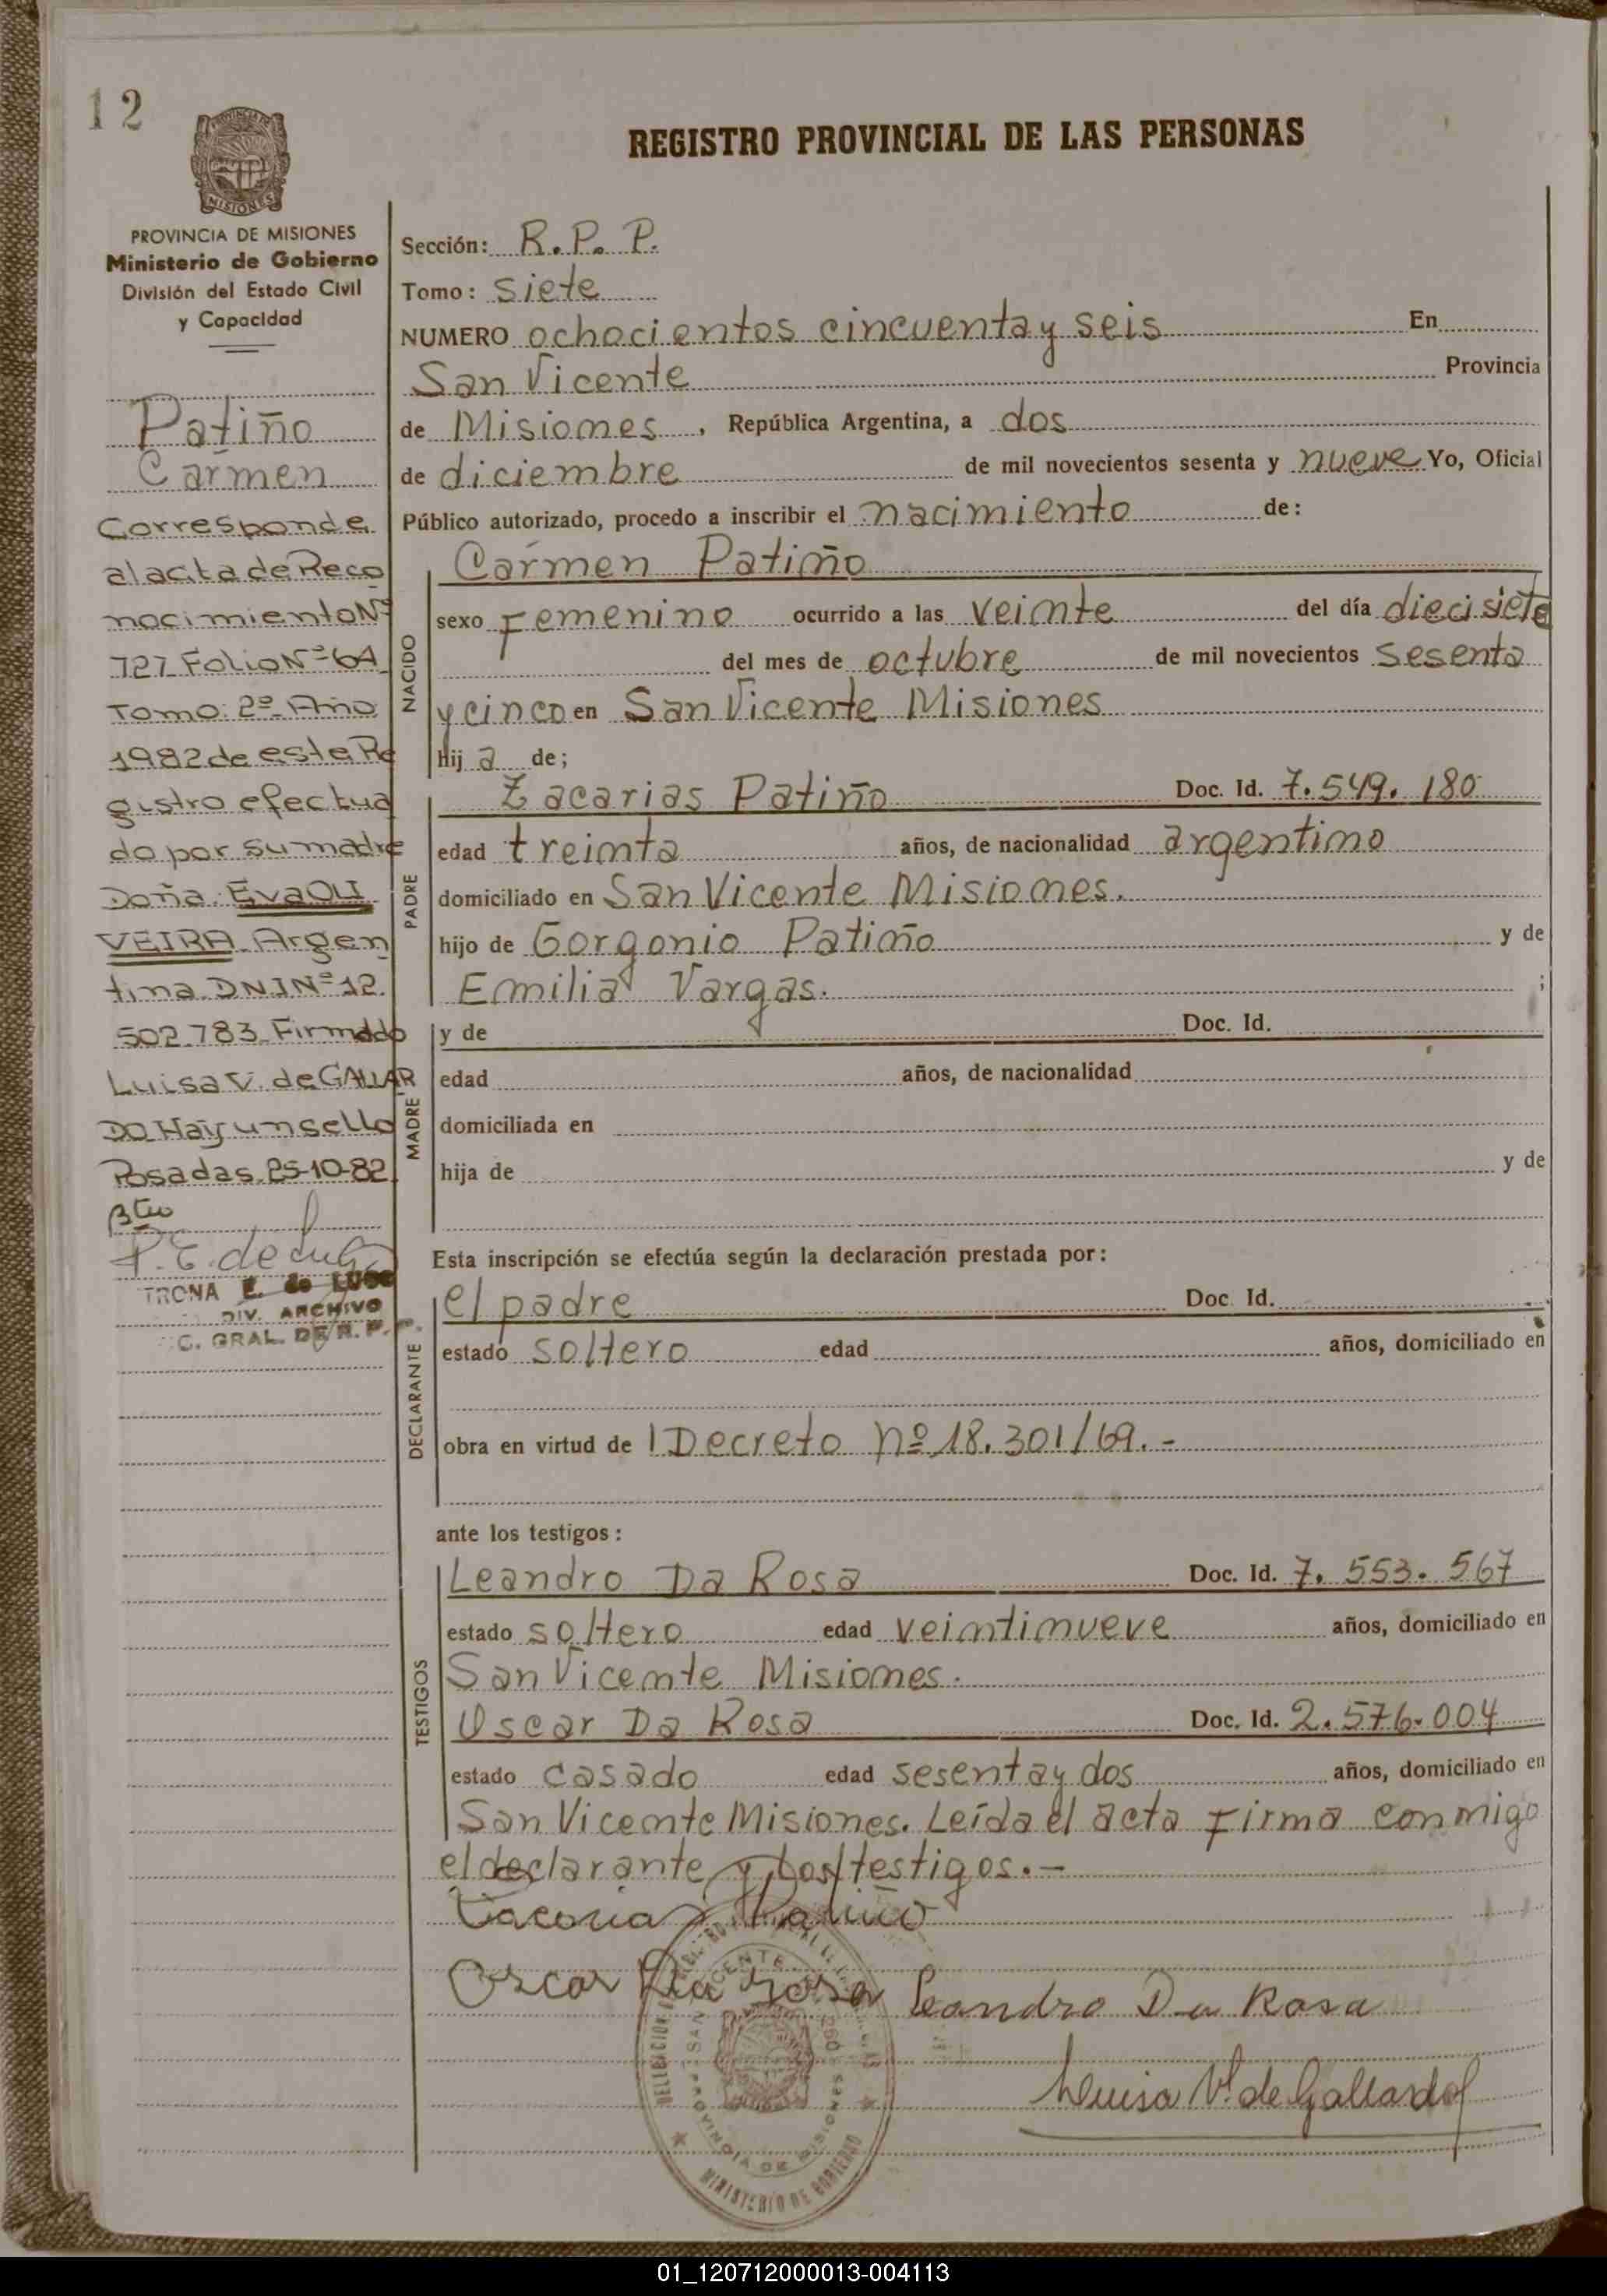 12
MISIONES
REGISTRO PROVINCIAL DE LAS PERSONAS
PROVINCIA DE MISIONES
Ministerio de Gobierno
División del Estado Civil
y Capacidad
Patiño
Carmen
Corresponde
al acta de Reco
nocimiento Nº
727 Folio Nº 64
Tomo: 2º Año
1982 de este Re
gistro efectua
do por su madre
Doña: Eva OLI
VEIRA Argen
tina DNI Nº 12.
502.783 Firmado
Luisa V. de GALLAR
DO Hay un sello
Posadas, 25-10-82
TRONA E. de LUGO
DIV. ARCHIVO
C. GRAL. DE R. P. P.
Sección: R. P. P.
Tomo: siete
NUMERO ochocientos cincuenta y seis En
San Vicente Provincia
de Misiones, República Argentina, a dos
de diciembre de mil novecientos sesenta y nueve Yo, Oficial
Público autorizado, procedo a inscribir el nacimiento de:
NACIDO
Carmen Patiño
sexo Femenino ocurrido a las veinte del día diecisiete
del mes de octubre de mil novecientos sesenta
y cinco en San Vicente Misiones
Hij a de;
PADRE
Zacarias Patiño Doc. Id. 7.549.180
edad treinta años, de nacionalidad argentino
domiciliado en San Vicente Misiones.
hijo de Gorgonio Patiño y de
Emilia Vargas. ;
MADRE
y de Doc. Id.
edad años, de nacionalidad
domiciliada en
hija de y de
Esta inscripción se efectúa según la declaración prestada por:
DECLARANTE
el padre Doc. Id.
estado soltero edad años, domiciliado en
obra en virtud de l Decreto nº 18.301/69.-
ante los testigos:
TESTIGOS
Leandro Da Rosa Doc. Id. 7.553.567
estado soltero edad veintinueve años, domiciliado en
San Vicente Misiones.
Oscar Da Rosa Doc. Id. 2.576.004
estado casado edad sesenta y dos años, domiciliado en
San Vicente Misiones. Leída el acta firma conmigo
el declarante y los testigos.-
Zacarias Patiño
Oscar Da Rosa Leandro Da Rosa
Luisa V. de Gallardo
SAN VICENTE
PROVINCIA DE MISIONES
MINISTERIO DE GOBIERNO
01_120712000013-004113